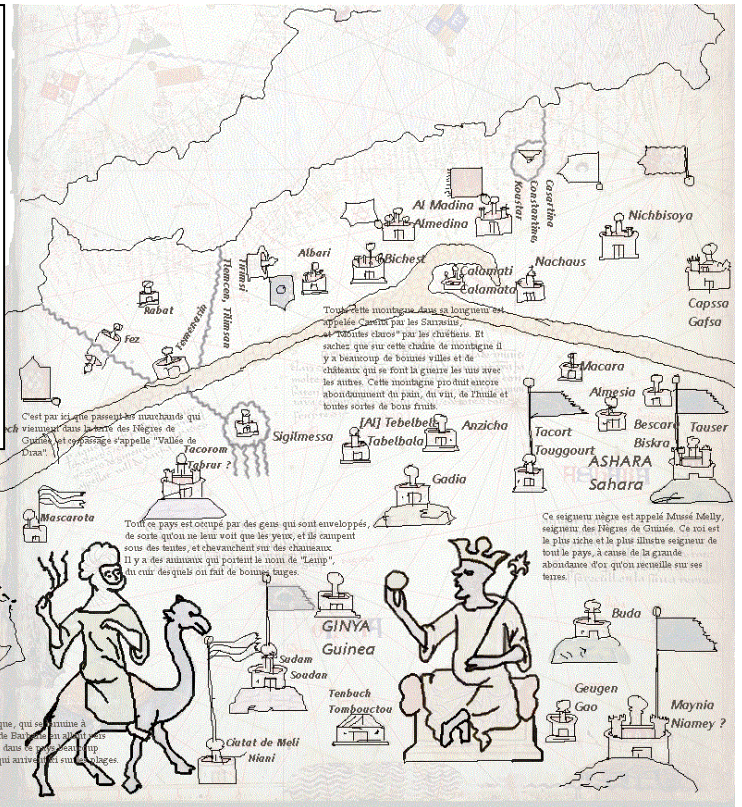 Al Madina
Almedina
Casartina
Constantina,
Koastar
Nichbisoya
Albari
Bichest
Nachaus
Calamati
Calamata
Capssa
Gafsa
Tirimsi
Tlemcen, Tilimsan
Rabat
Fez
Temenarik
Toute cette montagne dans sa longueur est
appelée Carena par les Sarrasins,
et "Montes claros" par les chrétiens. Et
sachez que sur cette chaîne de montagne il
y a beaucoup de bonnes villes et de
châteaux qui se font la guerre les uns avec
les autres. Cette montagne produit encore
abondamment du pain, du vin, de l'huile et
toutes sortes de bons fruits.
Macara
Almesia
Bescara
Biskra
Tauser
C'est par ici que passent les marchands qui
viennent dans la terre des Nègres de
Guinée, et ce passage s'appelle "Vallée de
Draa".
Sigilmessa
[Al] Tebelbelt
Tabelbala
Anzicha
Tacort
Touggourt
ASHARA
Sahara
Tacorom
Tabrur ?
Gadia
Mascarota
Tout ce pays est occupé par des gens qui sont enveloppés,
de sorte qu'on ne leur voit que les yeux, et ils campent
sous des tentes, et chevauchent sur des chameaux.
Il y a des animaux qui portent le nom de "Lemp",
du cuir desquels on fait de bonnes targes.
Ce seigneur nègre est appelé Mussé Melly,
seigneur des Nègres de Guinée. Ce roi est
le plus riche et le plus illustre seigneur de
tout le pays, à cause de la grande
abondance d'or qu'on recueille sur ses
terres.
GINYA
Guinea
Buda
Sudam
Soudan
Tenbuch
Tombouctou
Geugen
Gao
Maynia
Niamey ?
Ciutat de Meli
Niani
que, qui se termine à
de Barbarie en allant vers
dans ce pays beaucoup
qui arrivent ici sur les plages.